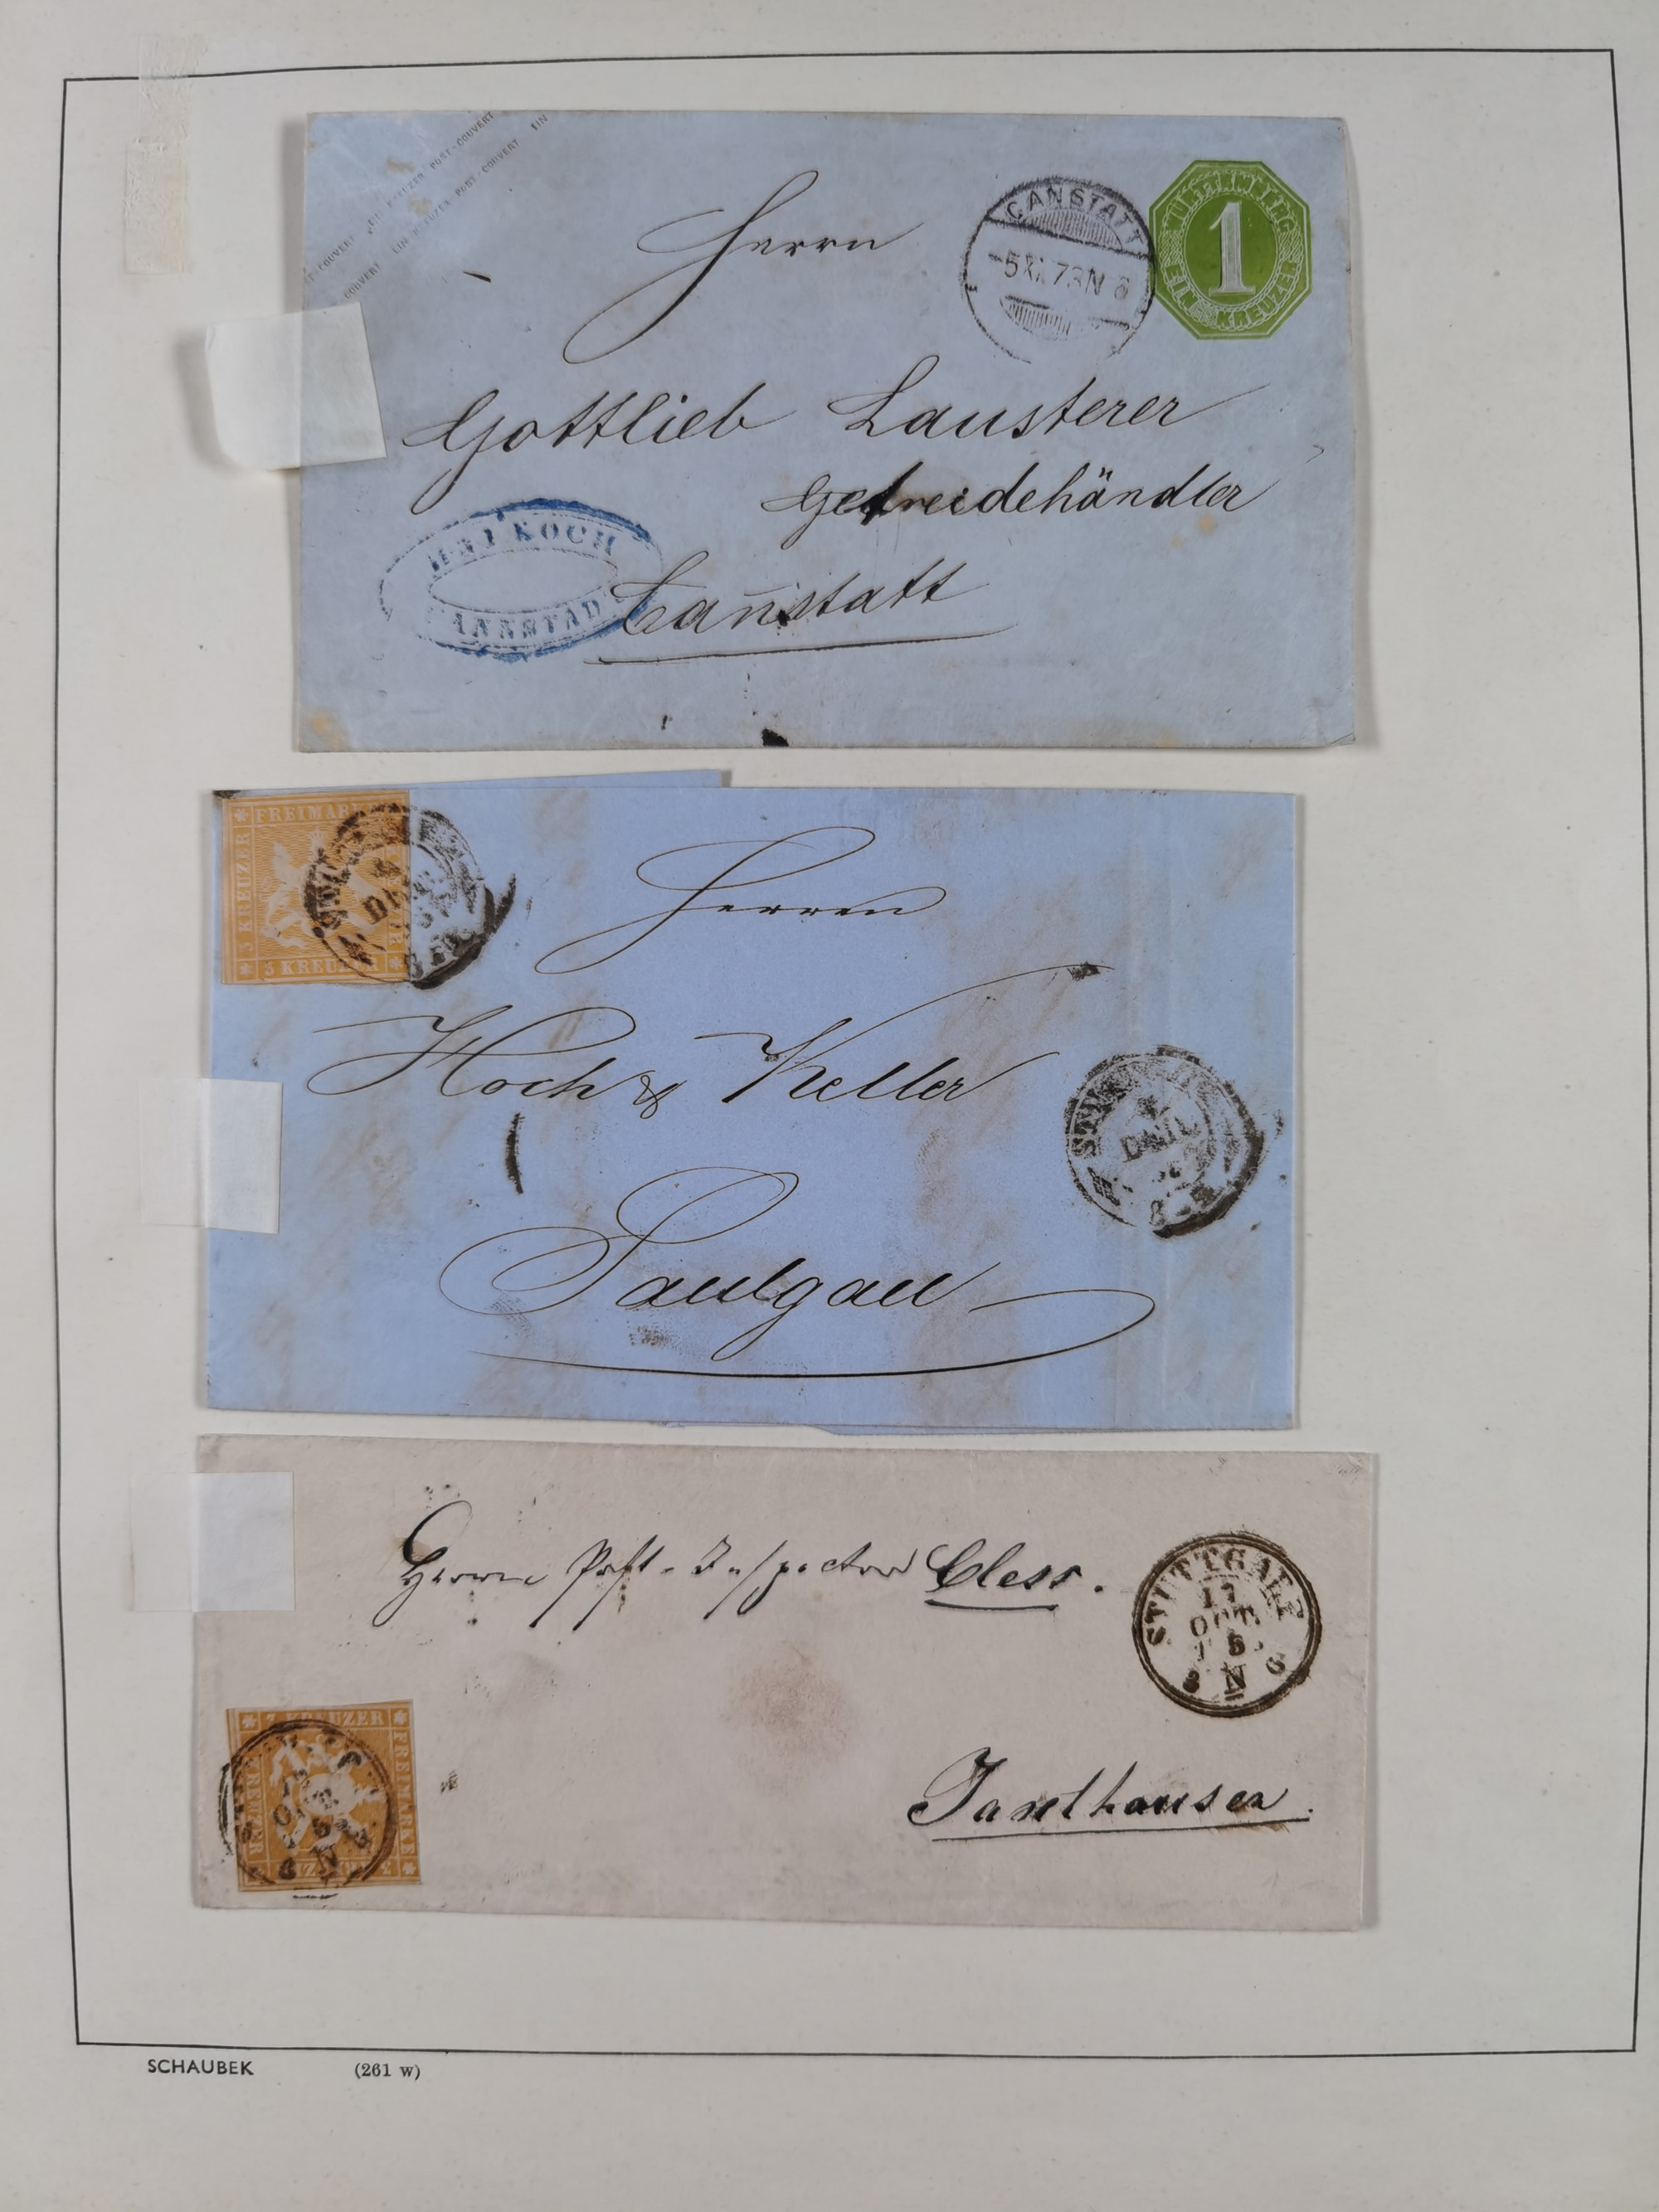 EIN KREUZER POST-COUVERT
COUVERT EIN KREUZER POST-COUVERT EIN
Herrn
CANSTATT
5 XI. 73 N 6
WÜRTTEMBERG
1
EIN KREUZER
Gottlieb Lausterer
Getreidehändler
KOCH
Canstatt
FREIMARKE
3 KREUZER
3 KREUZER
Herren
Hoch & Keller
Saulgau
Herrn Post-Inspector Cless.
STUTTGART
17
OCT.
8 N 6
3 KREUZER
FREIMARKE
Taxelhausen
SCHAUBEK (261 w)